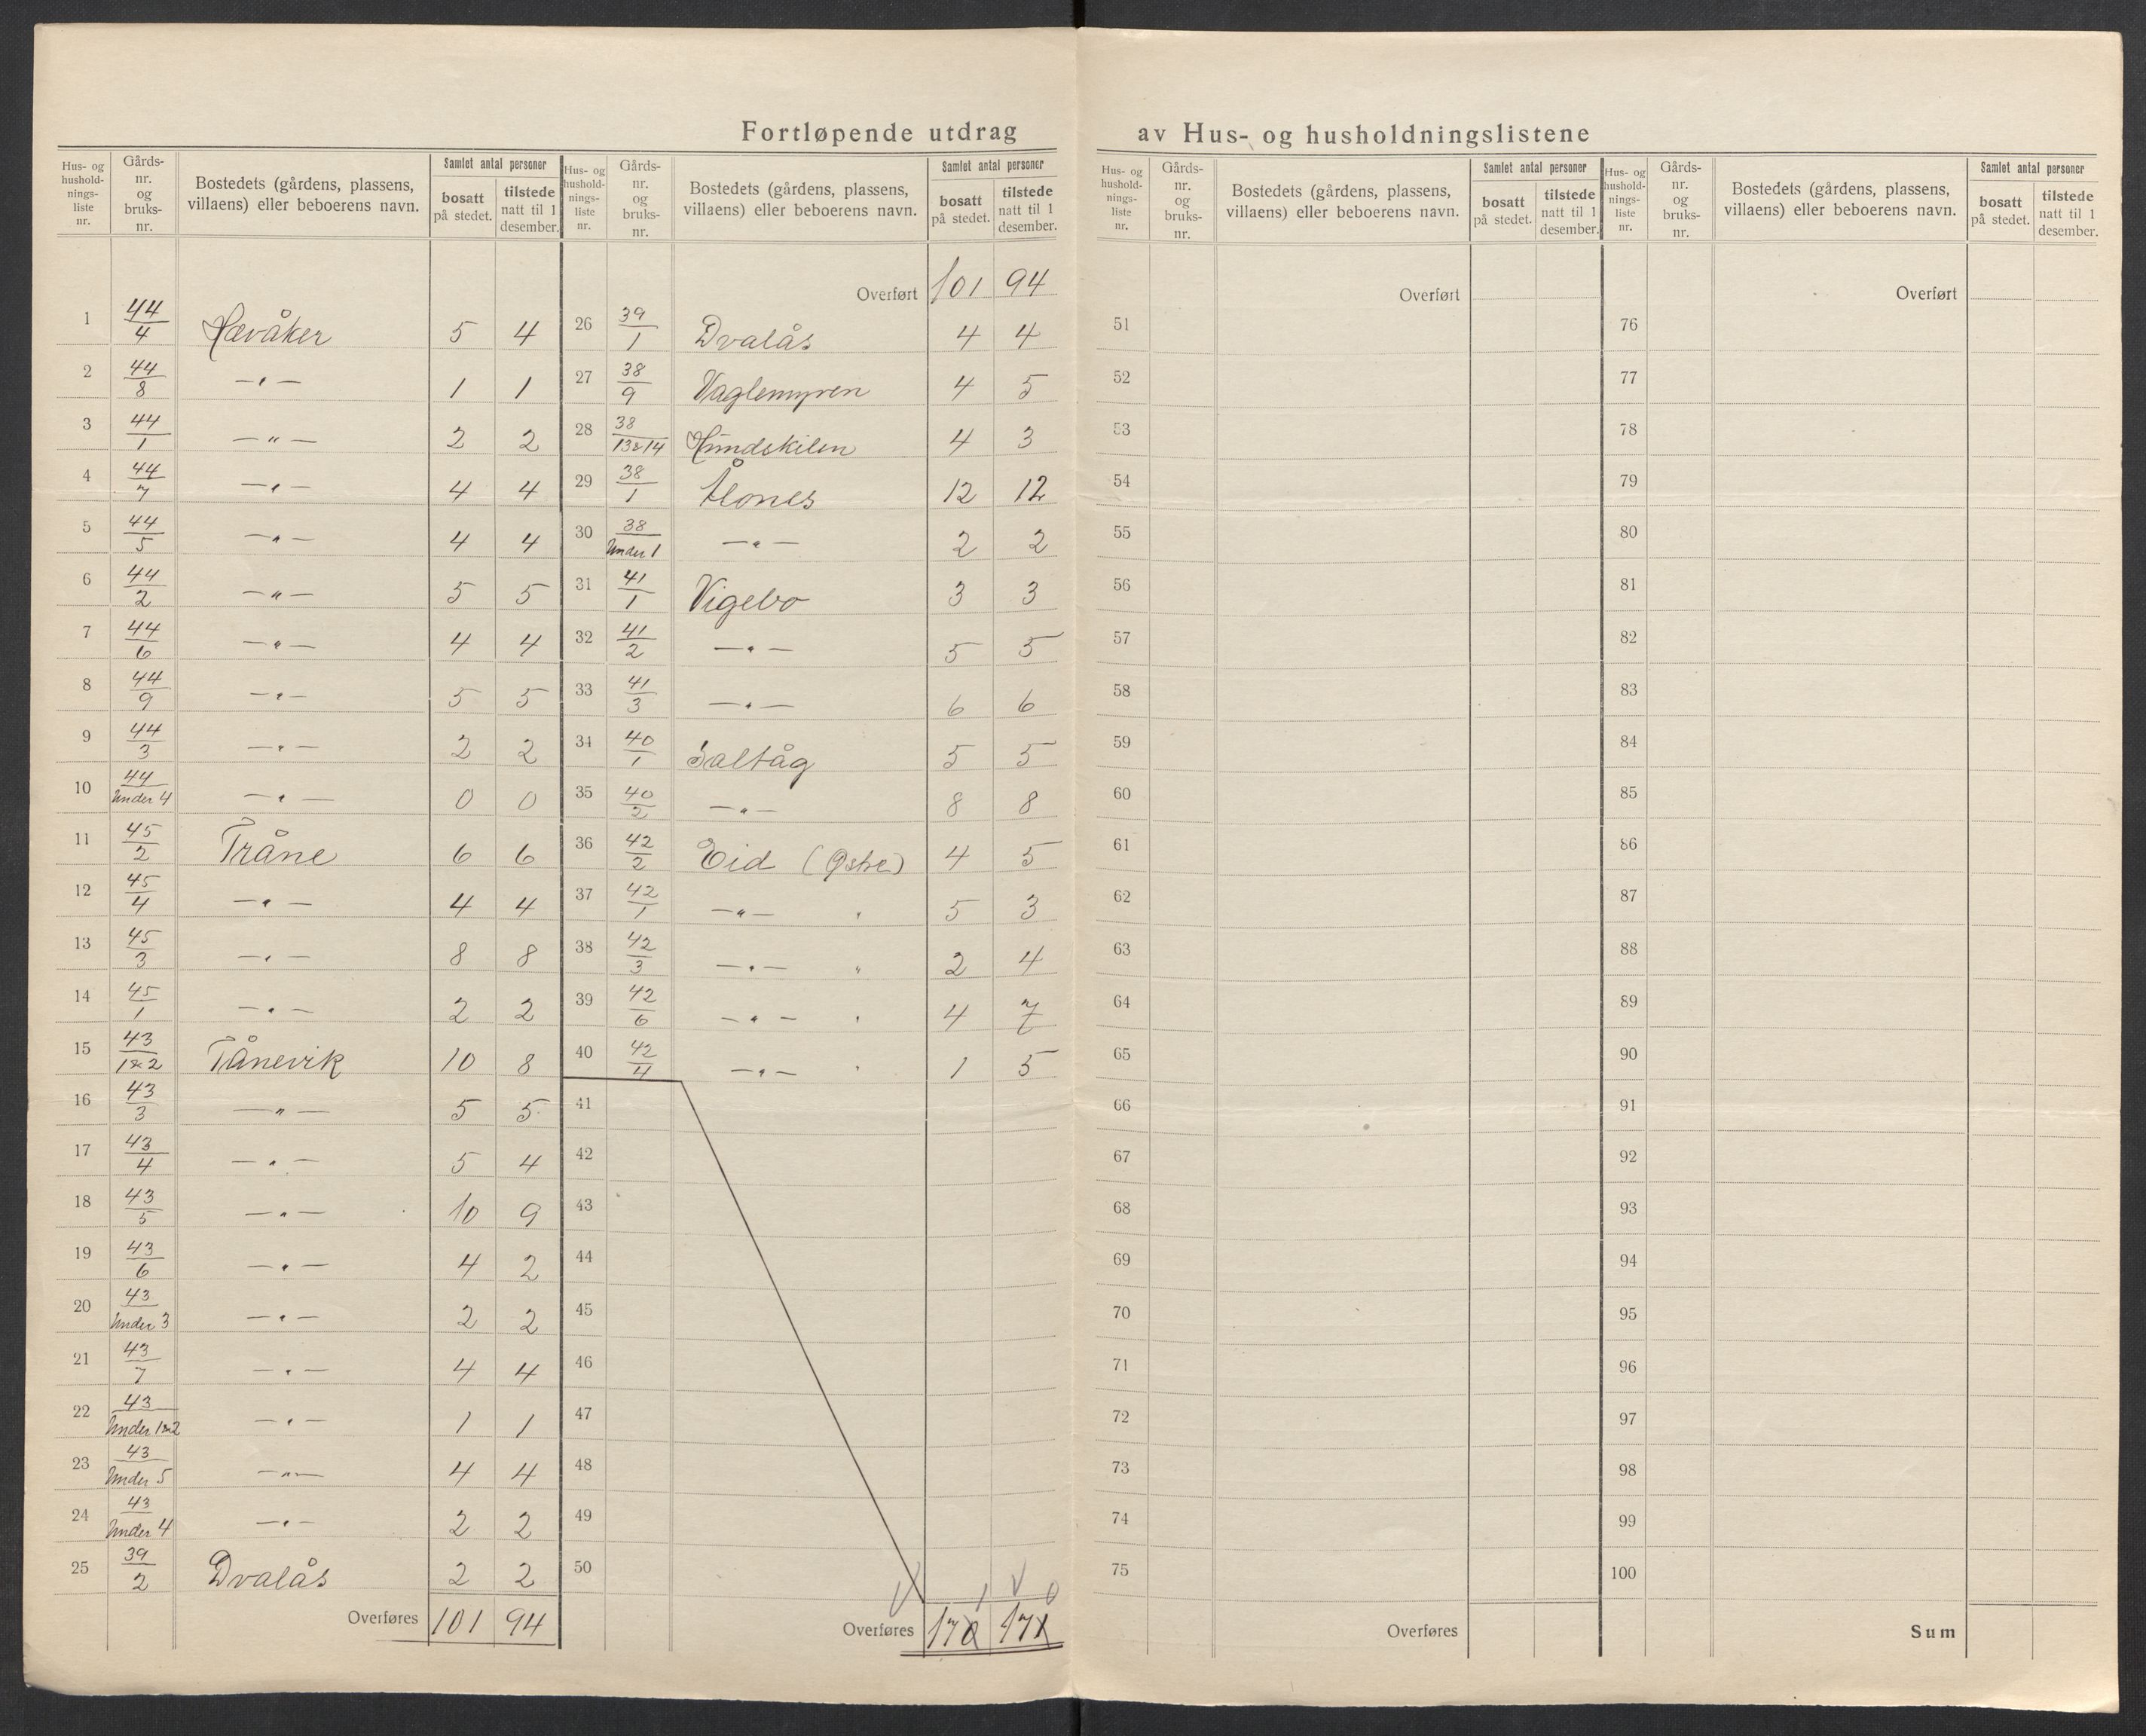 Fortløpende utdrag av Hus- og husholdningslistene
Hus- og hushold-nings-liste nr. | Gårds-nr. og bruks-nr. | Bostedets (gårdens, plassens, villaens) eller beboerens navn. | Samlet antal personer bosatt på stedet. | tilstede natt til 1 desember.
1 44/4 Hævåker 5 4
2 44/8 —„— 1 1
3 44/1 —„— 2 2
4 44/7 —„— 4 4
5 44/5 —„— 4 4
6 44/2 —„— 5 5
7 44/6 —„— 4 4
8 44/9 —„— 5 5
9 44/3 —„— 2 2
10 44/Under 4 —„— 0 0
11 45/2 Tråne 6 6
12 45/4 —„— 4 4
13 45/3 —„— 8 8
14 45/1 —„— 2 2
15 43/1&2 Tånevik 10 8
16 43/3 —„— 5 5
17 43/4 —„— 5 4
18 43/5 —„— 10 9
19 43/6 —„— 4 2
20 43/Under 3 —„— 2 2
21 43/7 —„— 4 4
22 43/Under 1&2 —„— 1 1
23 43/Under 5 —„— 4 4
24 43/Under 4 —„— 2 2
25 39/2 Dvalås 2 2
Overføres 101 94
Hus- og hushold-nings-liste nr. | Gårds-nr. og bruks-nr. | Bostedets (gårdens, plassens, villaens) eller beboerens navn. | Samlet antal personer bosatt på stedet. | tilstede natt til 1 desember.
Overført 101 94
26 39/1 Dvalås 4 4
27 38/9 Vaglemyren 4 5
28 38/13&14 Hundskilen 4 3
29 38/1 Ålones 12 12
30 38/Under 1 —„— 2 2
31 41/1 Vigebo 3 3
32 41/2 —„— 5 5
33 41/3 —„— 6 6
34 40/1 Saltåg 5 5
35 40/2 —„— 8 8
36 42/2 Eid (Østre) 4 5
37 42/1 —„— „ 5 3
38 42/3 —„— „ 2 4
39 42/6 —„— „ 4 7
40 42/4 —„— „ 1 5
41
42
43
44
45
46
47
48
49
50
1 0
Overføres 170 171
Hus- og hushold-nings-liste nr. | Gårds-nr. og bruks-nr. | Bostedets (gårdens, plassens, villaens) eller beboerens navn. | Samlet antal personer bosatt på stedet. | tilstede natt til 1 desember.
Overført
51
52
53
54
55
56
57
58
59
60
61
62
63
64
65
66
67
68
69
70
71
72
73
74
75
Overføres
Hus- og hushold-nings-liste nr. | Gårds-nr. og bruks-nr. | Bostedets (gårdens, plassens, villaens) eller beboerens navn. | Samlet antal personer bosatt på stedet. | tilstede natt til 1 desember.
Overført
76
77
78
79
80
81
82
83
84
85
86
87
88
89
90
91
92
93
94
95
96
97
98
99
100
Sum